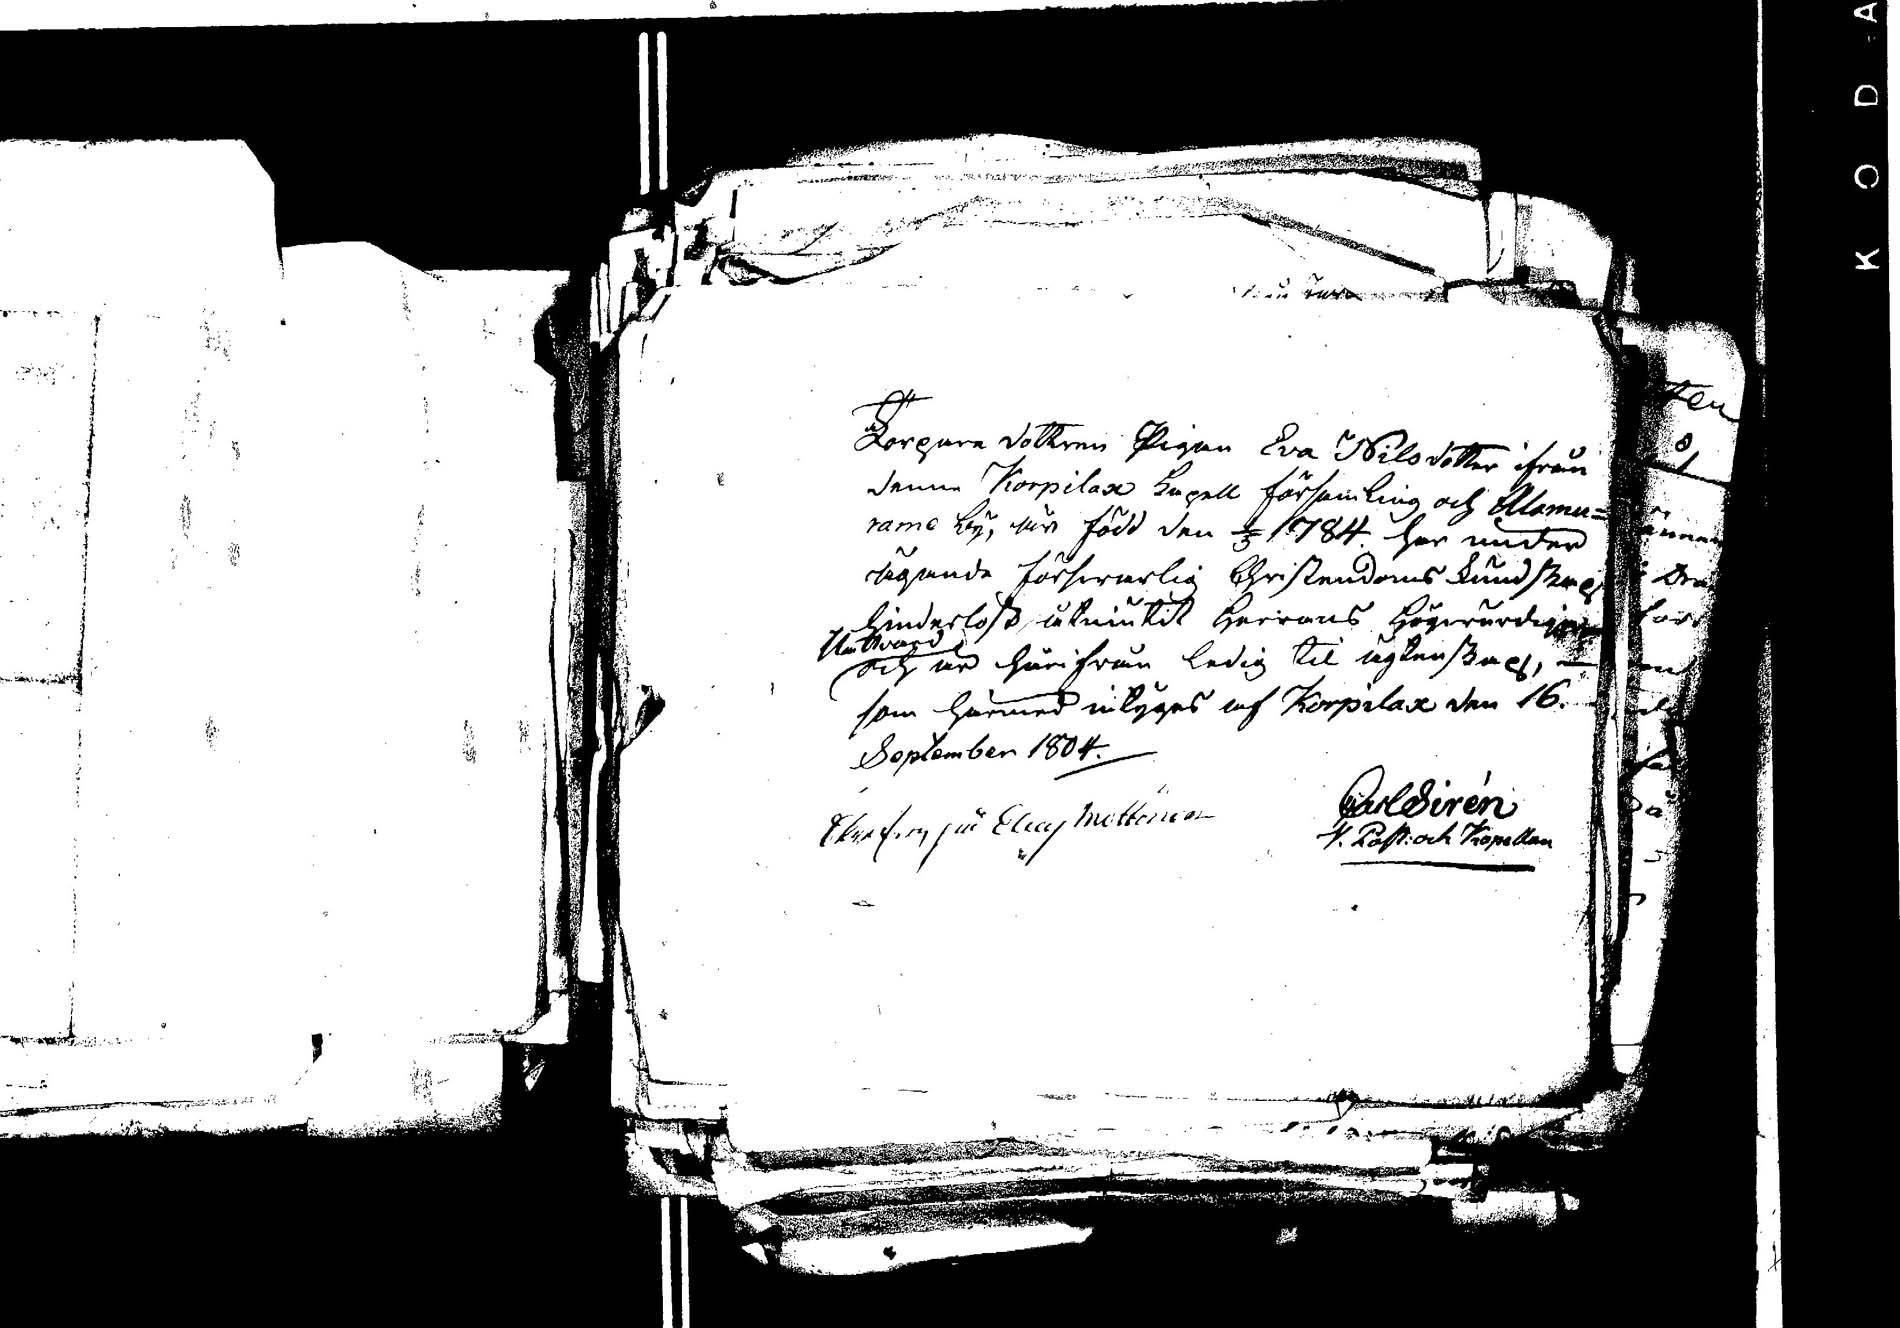 Torpare dottren Pigan Eva Nilsdotter ifrån
denna Korpilax Capell församling och Alamu=
rame by, är född den 1784. har under
ägande försvarlig Christendoms kundskap
hinderlöst utnjutit Herrans Högvürdiga
Nattvard
och är härifrån ledig til ägtenskap,
som härmed intygas af Korpilax den 16.
September 1804.
Carl Sirén
V. Past: och Kapellan
K O D A